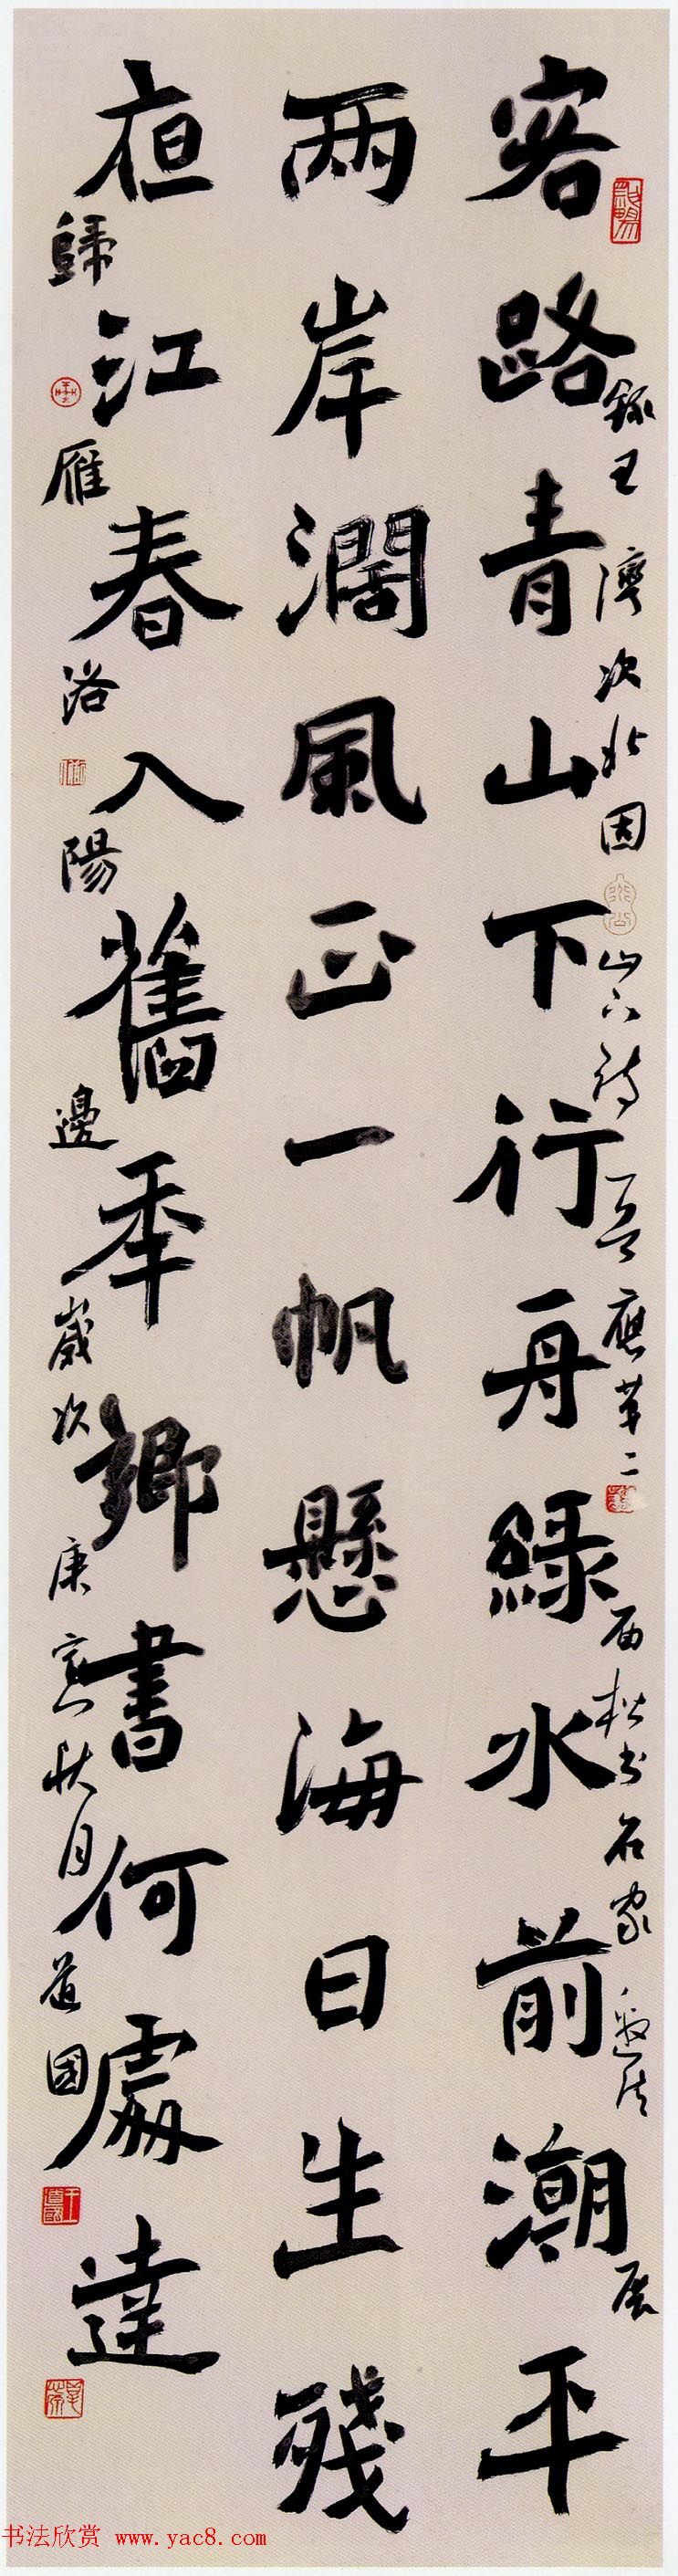 錄王灣次北固山下詩一首應第二屆書名家邀請展
客路青山下行舟綠水前潮平
兩岸濶風正一帆懸海日生殘
夜江春入舊秊鄉書何處達
歸雁洛陽邊歲次庚寅秋月道國
王道國
书法欣赏 www.yac8.com